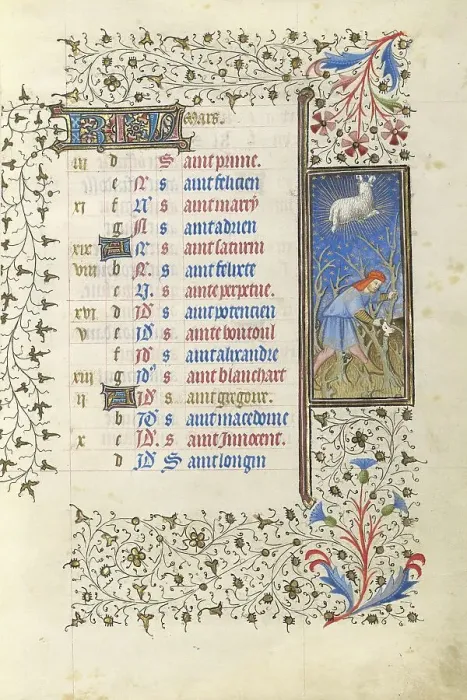 KL Mars.
iii d S ainte prime.
e N s aint felicien
xi f N s aint marcy
g N s aint adrien
xix A N s aint saturnin
viii b N s aint felixce
c N. s ainte perpetue.
xvi d ID s aint potencien
v e ID s ainte
f ID s aint alixandre
xiii g ID s aint blanchart
ii A ID s aint gregoire.
b ID s aint macedonie
x c ID. s aint Innocent.
d ID S aint longin